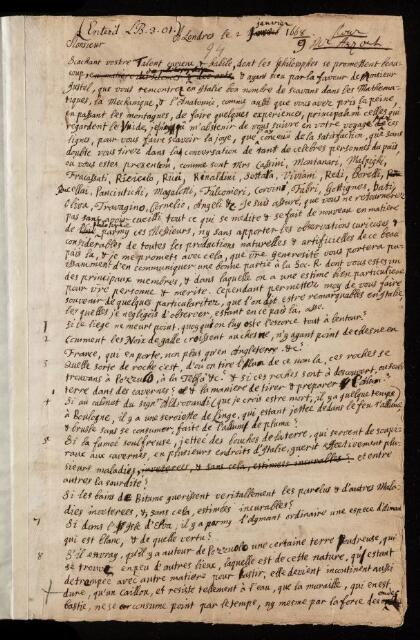 (Enterd LB. 2. 01.)
A Londre le 2 janvier 1668
Monsieur
9
pour
Mr Auzout
Sachant vostre Talent curieux & habile, dont les philosophes se promettent beau-
coup & ayant sieu par la faveur de Monsieur
Justel, que vous rencontrez en Italie bon nombre de scavans dans les Mathema-
tiques, la Mechanique, & l'Anatomie, comme aussi que vous avez pris la peine,
en passant les montagnes, de faire quelques experiences, principalement celles qui
regardent le Vuide, je m'abstenir de vous suivre en votre voyage de ces
lignes, pour vous faire scavoir la joye, que j'ay conceue de la satisfaction, que sans
doubte vous tirez dans la conversation de tant de celebres personnes du païs
ou vous estes presentem̄t, comme sont Mrs Cassini, Montanari, Malpighi,
Fracassati, Ricciolo, Ricci, Rinaldini, Settala, Viviani, Redi, Borelli,
Rucellai, Panciatichi, Magalotti, Falconieri, Corvino, Fabri, Gottignes, Bati,
Oliva, Travagino, Cornelio, Angeli &c. Je suis assuré, que vous ne retournerez
pas sans avoir cueilli tout ce qui se medite & se fait de nouveau en matiere
de philosophie parmy ces Messieurs, ny sans apporter les observations curieuses &
considerables de toutes les productions naturelles & artificielles de ce beau
païs la, & je me promets avec cela, que vre generosité vous portera pu-
issamment d'en communiquer une bonne partie à la Soc. R. dont vous estes un
des principaux membres, & dans laquelle on a une estime bien particuliere
pour vre personne & merite. Cependant permettez moy de vous faire
souvenir de quelques particularitez, que l'on dit estre remarquables en Italie,
les quelles je vous prie de ne negliger d'observer, estant en ce païs la, sçavoir
1 Si le liege ne meurt point, quoy qu'on luy oste l'escorce tout à l'entour?
2 Comment les Noix de galle croissent au chesne, n'y ayant point de chesne en
France, qui en porte, non plus qu'en Angleterre &c?
3 Quelle sorte de roche c'est, d'ou on tire l'Alun de ce nom la, ces roches se
trouvans à Pozzuolo, à la Tolfa &c? & si ces roches sont à descouvert, ou sous
terre dans des cavernes? & la maniere de tirer & preparer l'Alun?
4 Si au cabinet du signr Aldrovandi (que je crois estre mort, il y a quelque temps)
à Boulogne, il y a une serviette de linge, qui estant jettée dedans le feu s'allume
& brusle sans se consumer, faite de l'allum de plume?
5 Si la fumée soulfreuse, jettée des bouches de la terre, qui servent de soupi-
raux aux cavernes, en plusieurs endroits d'Italie, guerit effectivement plu-
sieurs maladies, inveterees, & sans cela, estimées incurables? & entre
autres la sourdité?
6 Si les bains de Bitume guerissent veritablement les paralus & d'autres Mala-
dies inveterees, &, sans cela, estimées incurables?
7 Si dans l'Isle d'Elva, il y a parmy l'aymant ordinaire une espece d'aimant
qui est blanc, & de quelle vertu?
8 S'il est vray, qu'il y a autour de Pozzuolo une certaine terre poudreuse, qui
se trouve en peu d'autres lieux, laquelle est de ceste nature, qu'estant
detrempée avec autre matiere pour bastir, elle devient incontinent aussi
dure, qu'un caillou, et resiste tellement à l'eau, que la muraille, qui en est
bastie, ne se consume point par le temps, ny mesme par la force des ondes